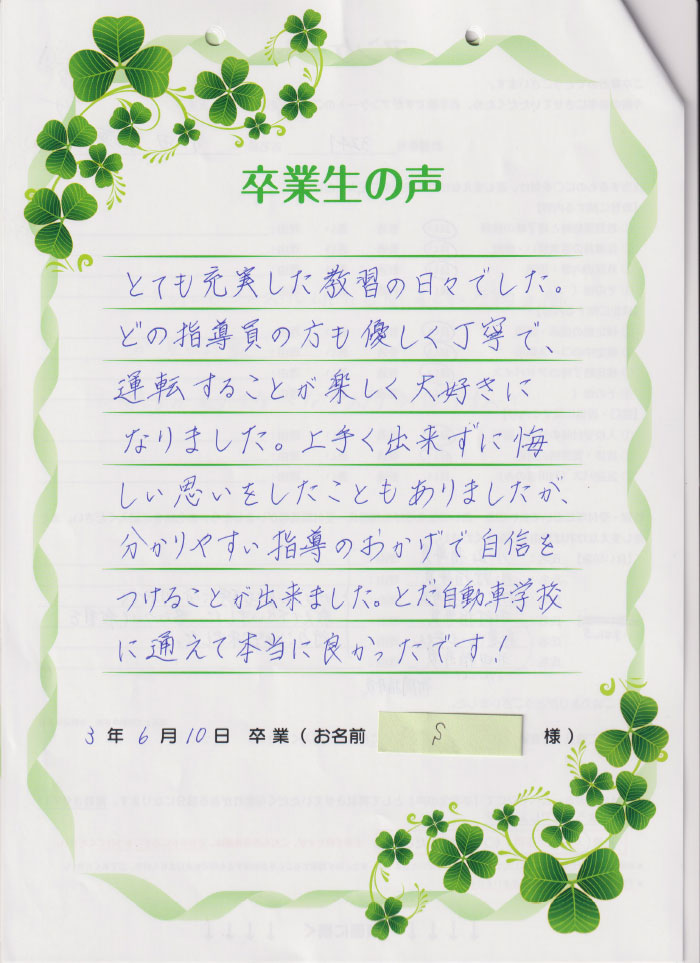 卒業生の声
とても充実した教習の日々でした。
どの指導員の方も優しく丁寧で、
運転することが楽しく大好きに
なりました。上手く出来ずに悔
しい思いをしたこともありましたが、
分かりやすい指導のおかげで自信を
つけることが出来ました。とだ自動車学校
に通えて本当に良かったです！
3年6月10日 卒業（お名前 S 様）